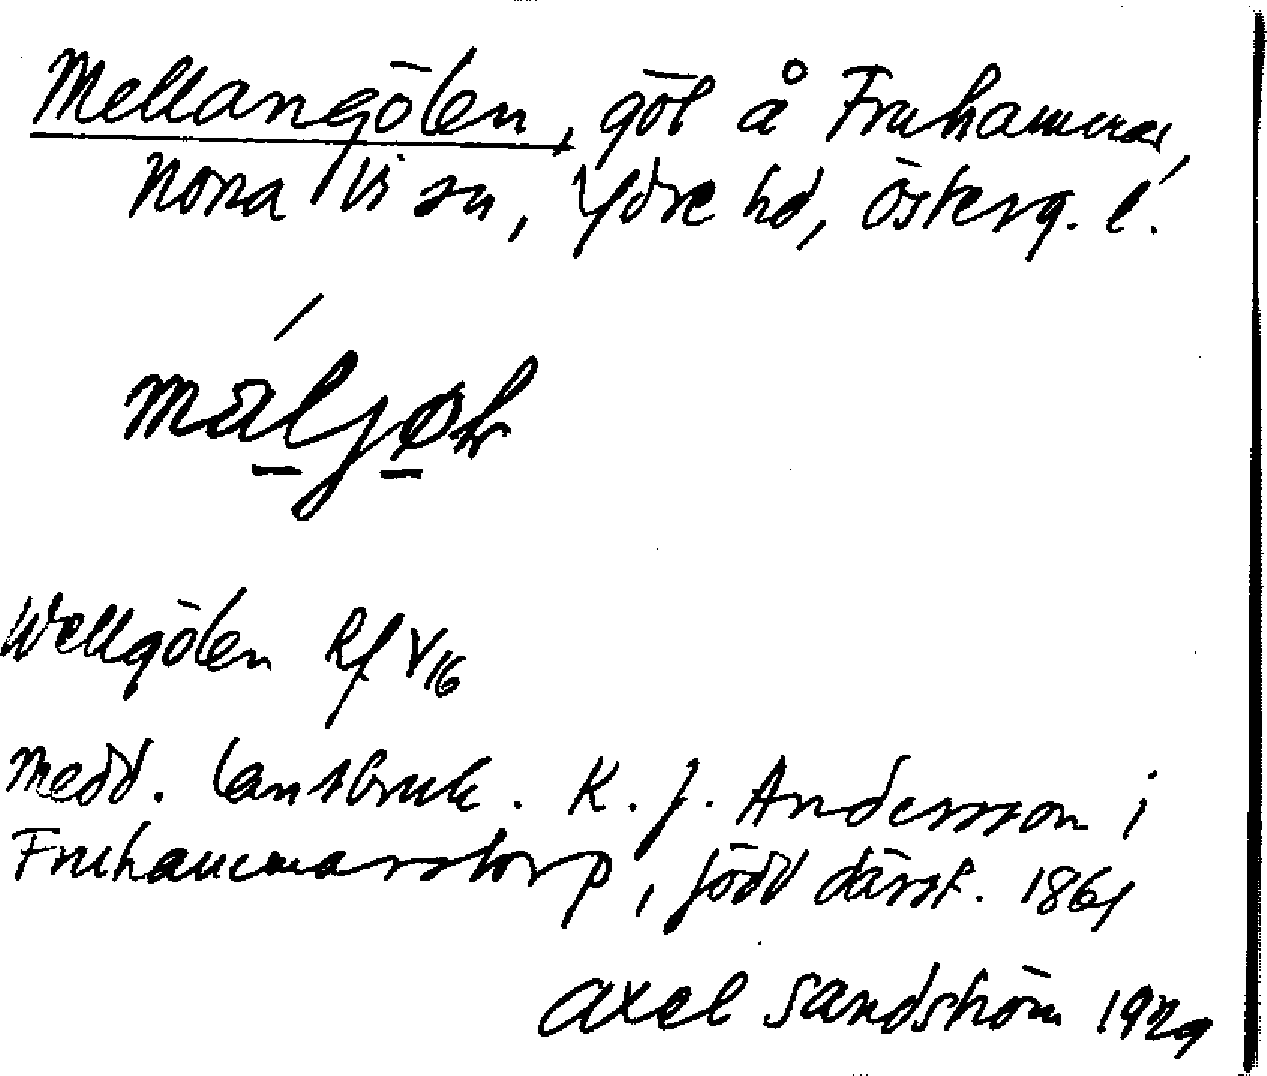 Mellangölen, göl å Fruhammar,
Norra Vi sn, Ydre hd, Österg. l.
Wellgölen Rf V 16
Medd. lantbruk. K. J. Andersson i
Fruhammarstorp, född därst. 1861
Axel Sandström 1929